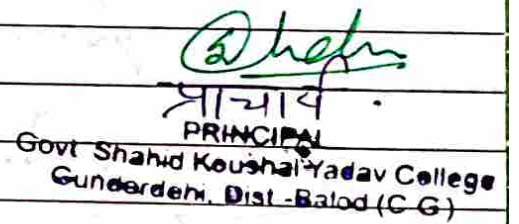 प्राचार्य
PRINCIPAL
Govt Shahid Koushal Yadav College
Gunderdehi, Dist-Balod (C G)